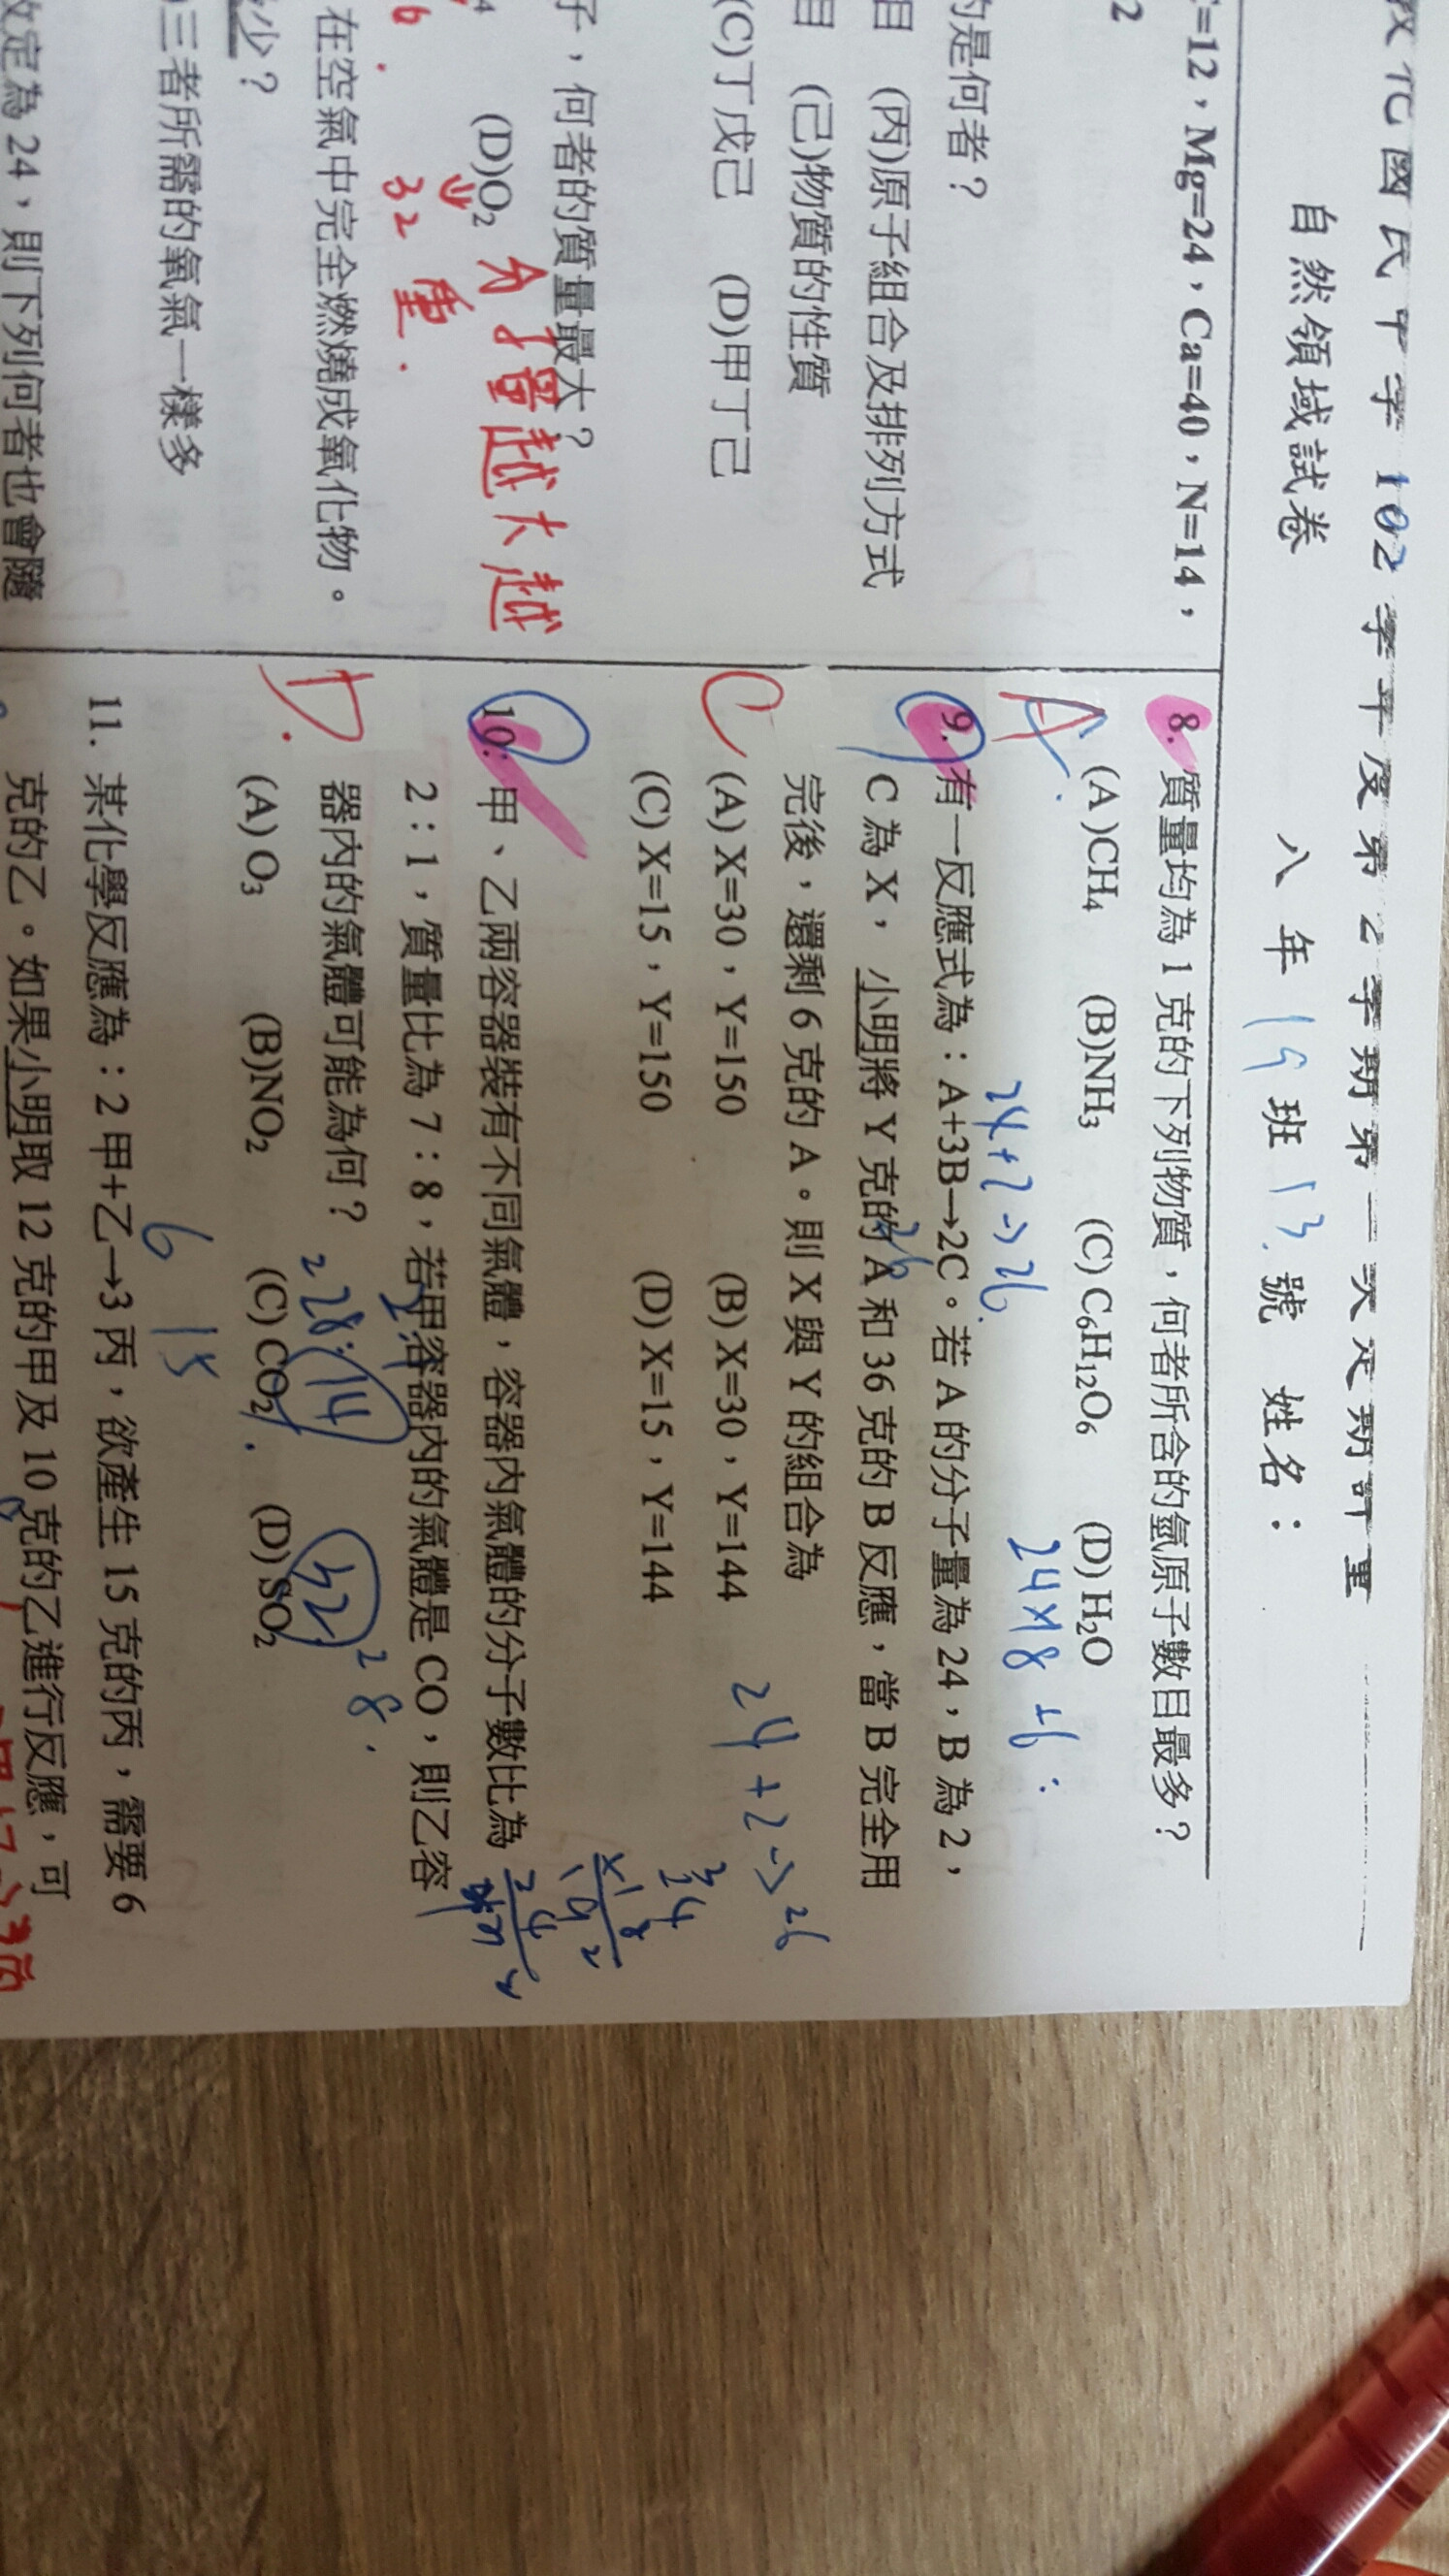 102 學年度第 2 學期第一次定期評量
自然領域試卷
八 年 19 班 13. 號 姓名：
=12，Mg=24，Ca=40，N=14，
2
的是何者？
目 (丙)原子組合及排列方式
目 (己)物質的性質
(C)丁戊己 (D)甲丁己
子，何者的質量最大？
(D)O2
分子量越大越
32 重.
在空氣中完全燃燒成氧化物。
少？
三者所需的氧氣一樣多
定為 24，則下列何者也會隨
A
8. 質量均為 1 克的下列物質，何者所含的氫原子數目最多？
(A )CH4 (B)NH3 (C) C6H12O6 (D) H2O
24+2→26 24×18+6:
C
9. 有一反應式為：A+3B→2C。若 A 的分子量為 24，B 為 2，
C 為 X，小明將 Y 克的 A 和 36 克的 B 反應，當 B 完全用
完後，還剩 6 克的 A。則 X 與 Y 的組合為
(A) X=30，Y=150 (B) X=30，Y=144
(C) X=15，Y=150 (D) X=15，Y=144
24+2→26
D.
10. 甲、乙兩容器裝有不同氣體，容器內氣體的分子數比為
2：1，質量比為 7：8，若甲容器內的氣體是 CO，則乙容
器內的氣體可能為何？
28 14 32 28.
(A) O3 (B)NO2 (C) CO2 (D) SO2
6 15
11. 某化學反應為：2 甲+乙→3 丙，欲產生 15 克的丙，需要 6
克的乙。如果小明取 12 克的甲及 10 克的乙進行反應，可